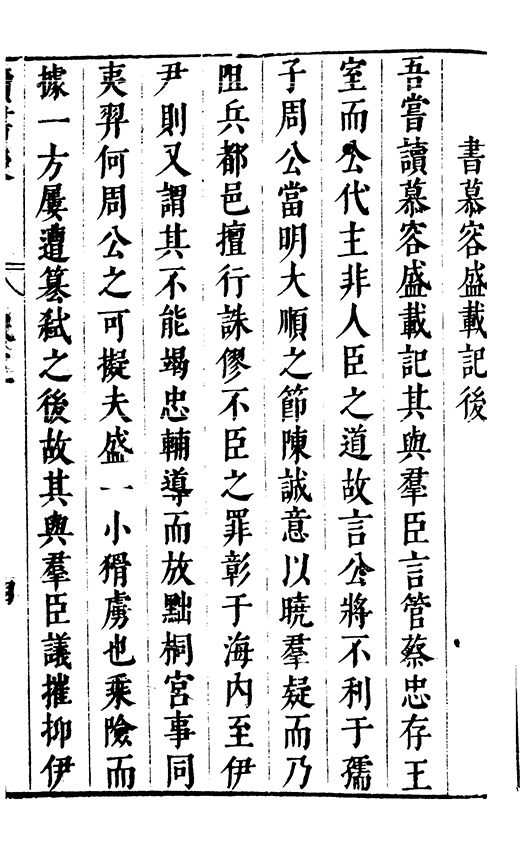 書慕容盛載記後
吾嘗讀慕容盛載記其與羣臣言管蔡忠存王
室而公代主非人臣之道故言公將不利于孺
子周公當明大順之節陳誠意以曉羣疑而乃
阻兵都邑擅行誅僇不臣之罪彰于海內至伊
尹則又謂其不能竭忠輔導而放黜桐宮事同
夷羿何周公之可擬夫盛一小猾虜也乗險而
據一方屢遭篡弑之後故其與羣臣議摧抑伊